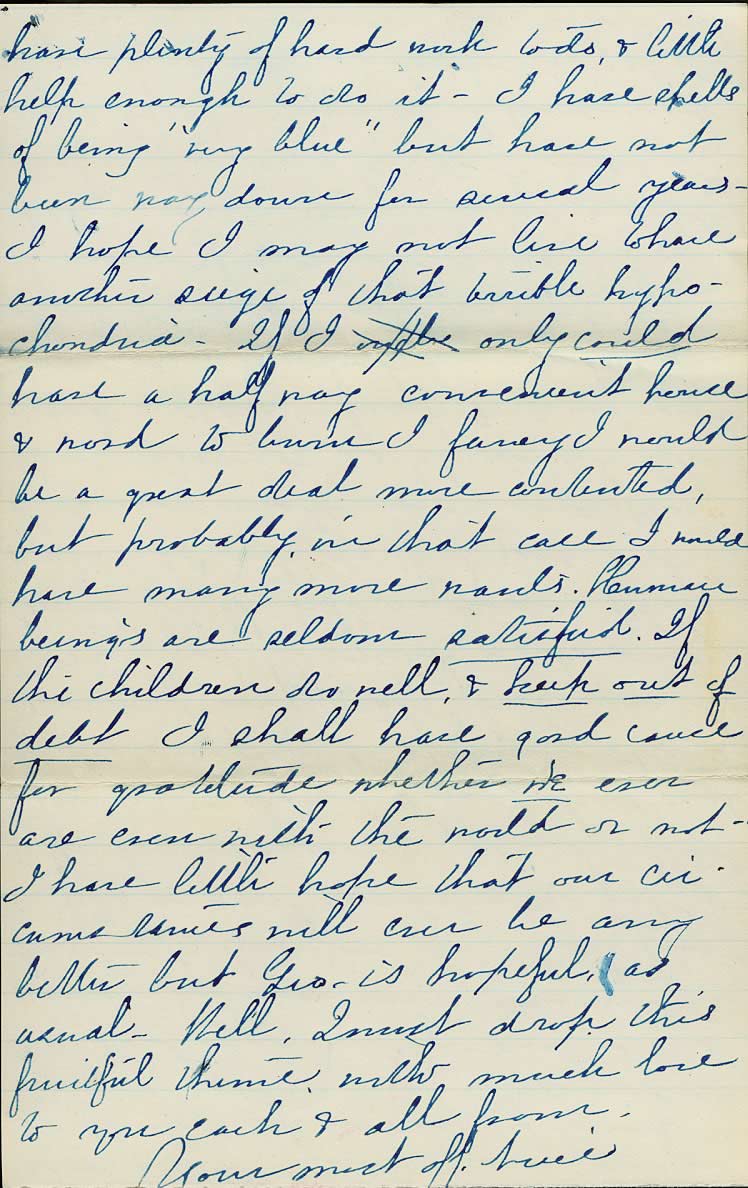 have plenty of hard work to do, & little
help enough to do it - I have spells
of being "very blue" but have not
been way down for several years -
I hope I may not live to have
another seige of that terrible hypo-
chondria - If I only could
have a half way convenient house
& wood to burn I fancy I would
be a great deal more contented,
but probably, in that case I would
have many more wants. Human
beings are seldom satisfied. If
the children do well, & keep out of
debt I shall have good cause
for gratitude whether we ever
are even with the world or not -
I have little hope that our cir-
cumstances will ever be any
better but Geo- is hopeful, as
usual - Well, I must drop this
fruitful theme. with much love
to you each & all from.
Your most aff.